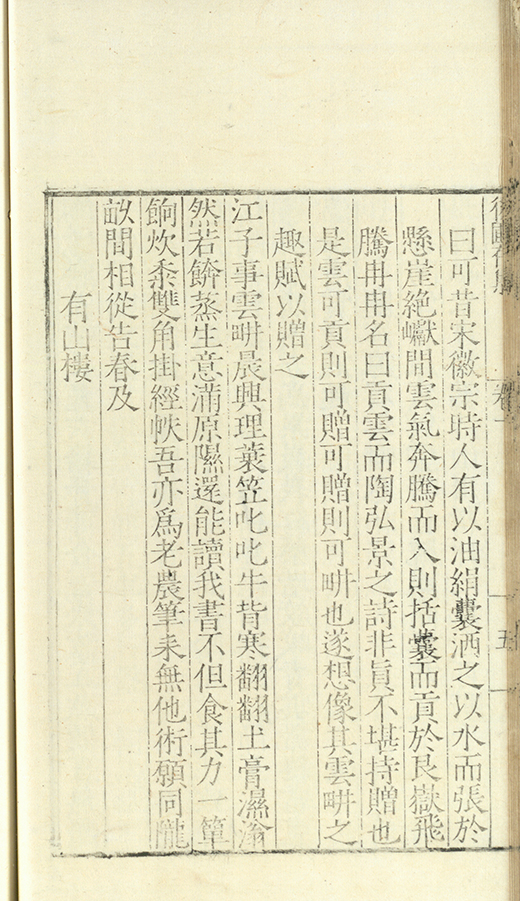 卷一
五
曰可昔宋徽宗時人有以油絹囊洒之以水而張於
懸崖絶巘間雲氣奔騰而入則括囊而貢於艮嶽飛
騰冉冉名曰貢雲而陶弘景之詩非眞不堪持贈也
是雲可貢則可贈可贈則可畊也遂想像其雲畊之
趣賦以贈之
江子事雲畊晨興理蓑笠叱叱牛背寒翻翻土膏濕滃
然若餴蒸生意滿原隰還能讀我書不但食其力一簞
餉炊黍雙角掛經帙吾亦爲老農筆耒無他術願同隴
畝間相從告春及
有山樓